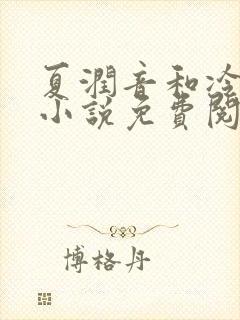 夏潤音和冷
小說免費閱
博格丹